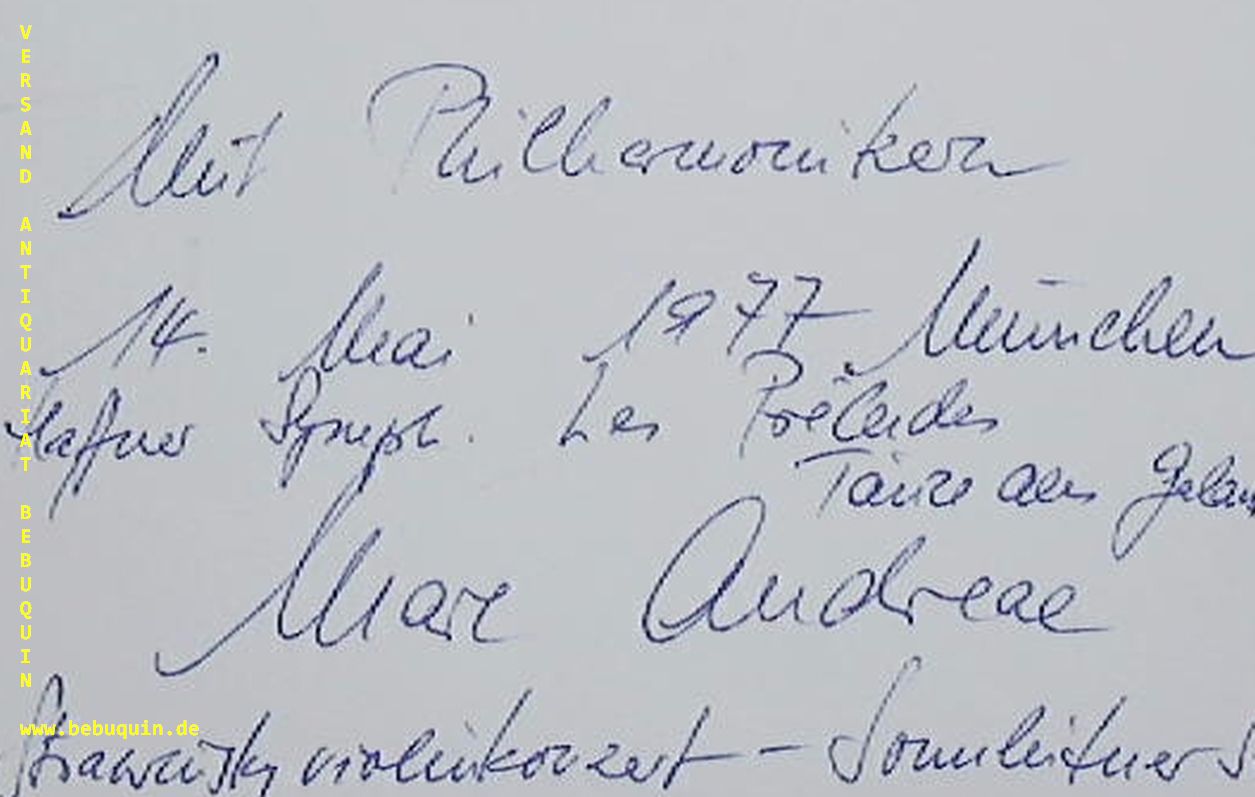 Mit Philharmonikern
14. Mai 1977 München
Haffner Symph. Les Préludes
Tänze aus Galan
Marc Andreae
Strawinsky Violinkonzert - Sonnleitner S
VERSAND ANTIQUARIAT BEBUQUIN
www.bebuquin.de